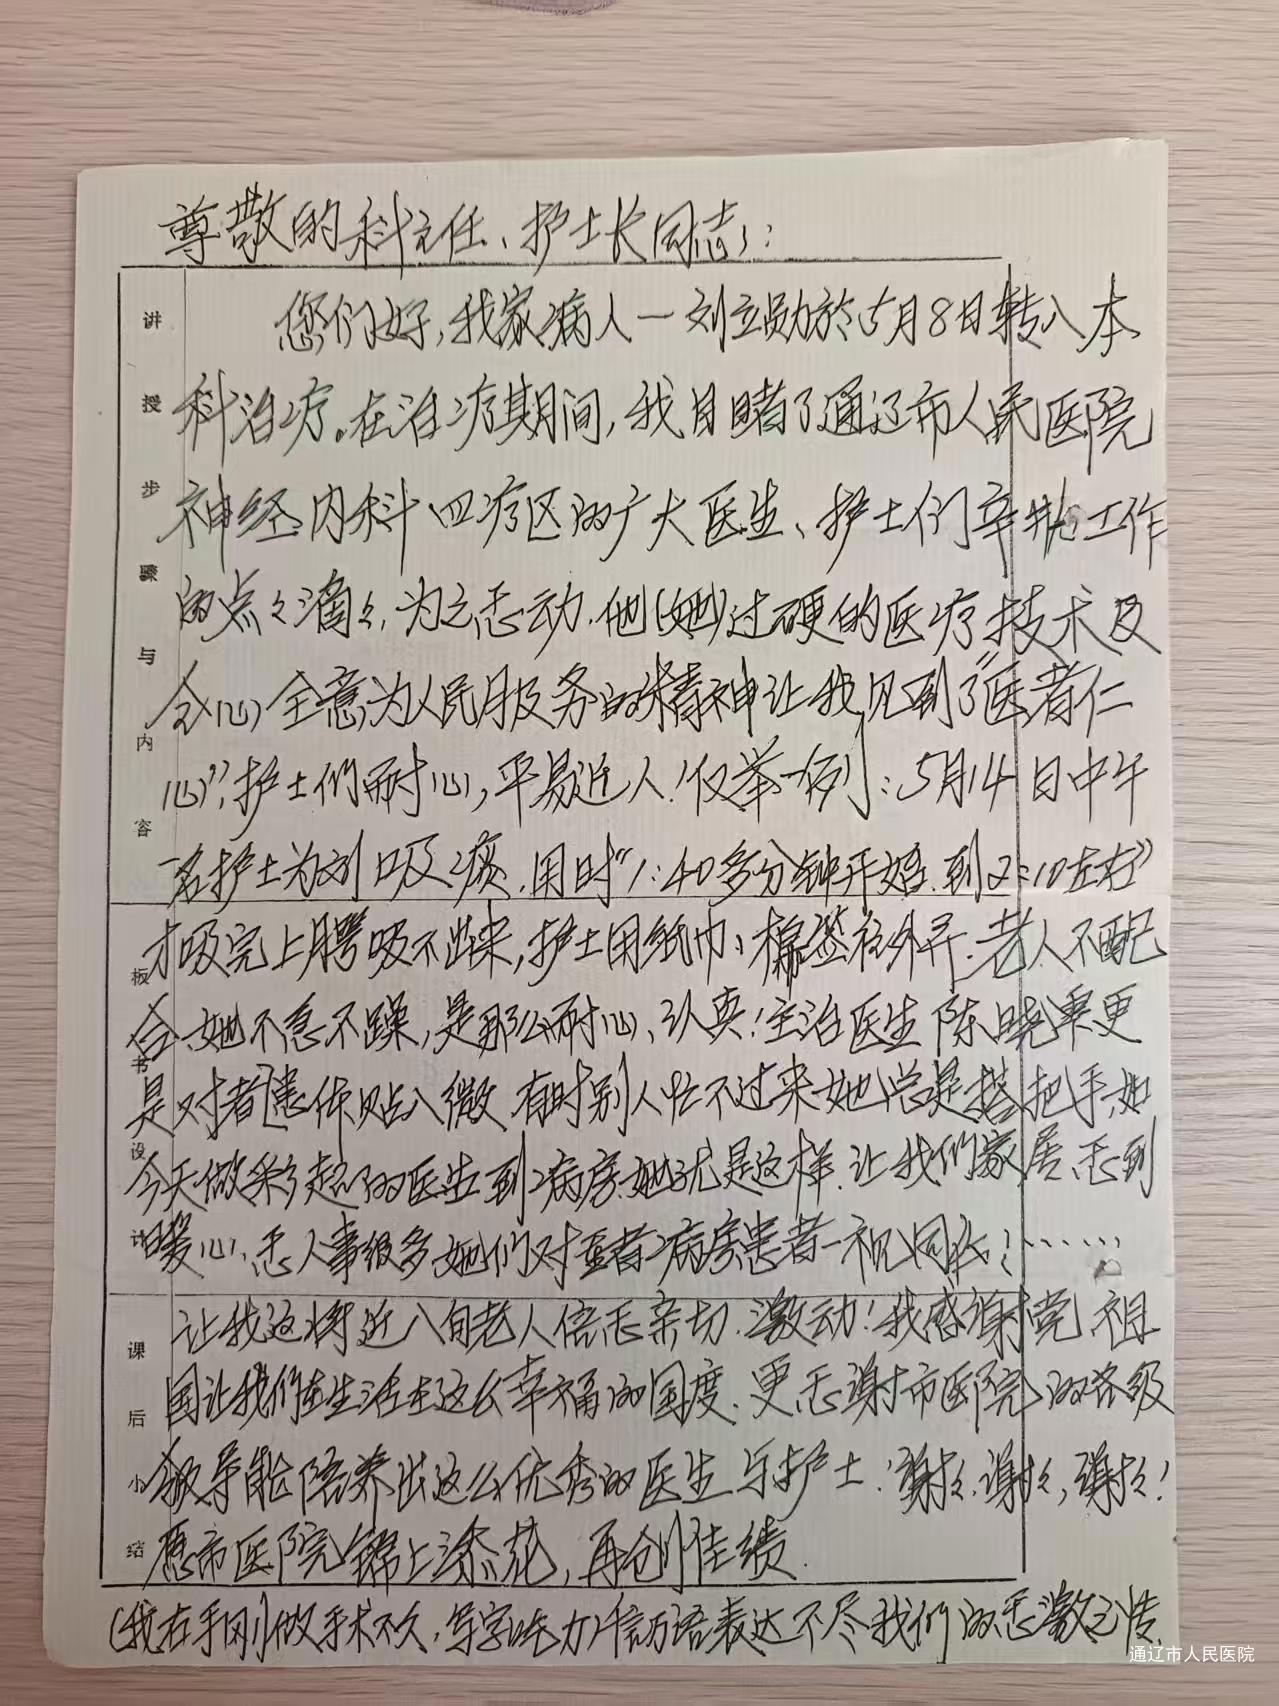 尊敬的科主任、护士长同志:
您们好,我家病人一刘立勋於5月8日转入本
科治疗。在治疗期间,我目睹了通辽市人民医院
神经内科四疗区的广大医生、护士们辛勤工作
的点々滴々,为之感动.他(她)过硬的医疗技术及
全心全意为人民服务的精神让我见到了“医者仁
心”,护士们耐心,平易近人!仅举一例:5月14日中午
一名护士为刘吸痰.用时“1:40多分钟开始.到2:10左右”
才吸完上腭吸不出来,护士用纸巾、棉签往外弄.老人不配
合.她不急不躁,是那么耐心、认真!主治医生陈晓东更
是对患者体贴入微.有时别人忙不过来她总是搭把手,如
今天做彩超的医生到病房.她就是这样.让我们家居感到
暖心、感人事很多她们对重者病房患者一视同仁!......
让我这将近八旬老人倍感亲切.激动!我感谢党.祖
国让我们在生活在这么幸福的国度.更感谢市医院的各级
领导能培养出这么优秀的医生与护士!谢々.谢々,谢々!
愿市医院锦上添花,再创佳绩.
(我右手刚做手术不久,写字吃力)千言万语表达不尽我们的感激之情.
讲授步骤与内容
板书设计
课后小结
通辽市人民医院